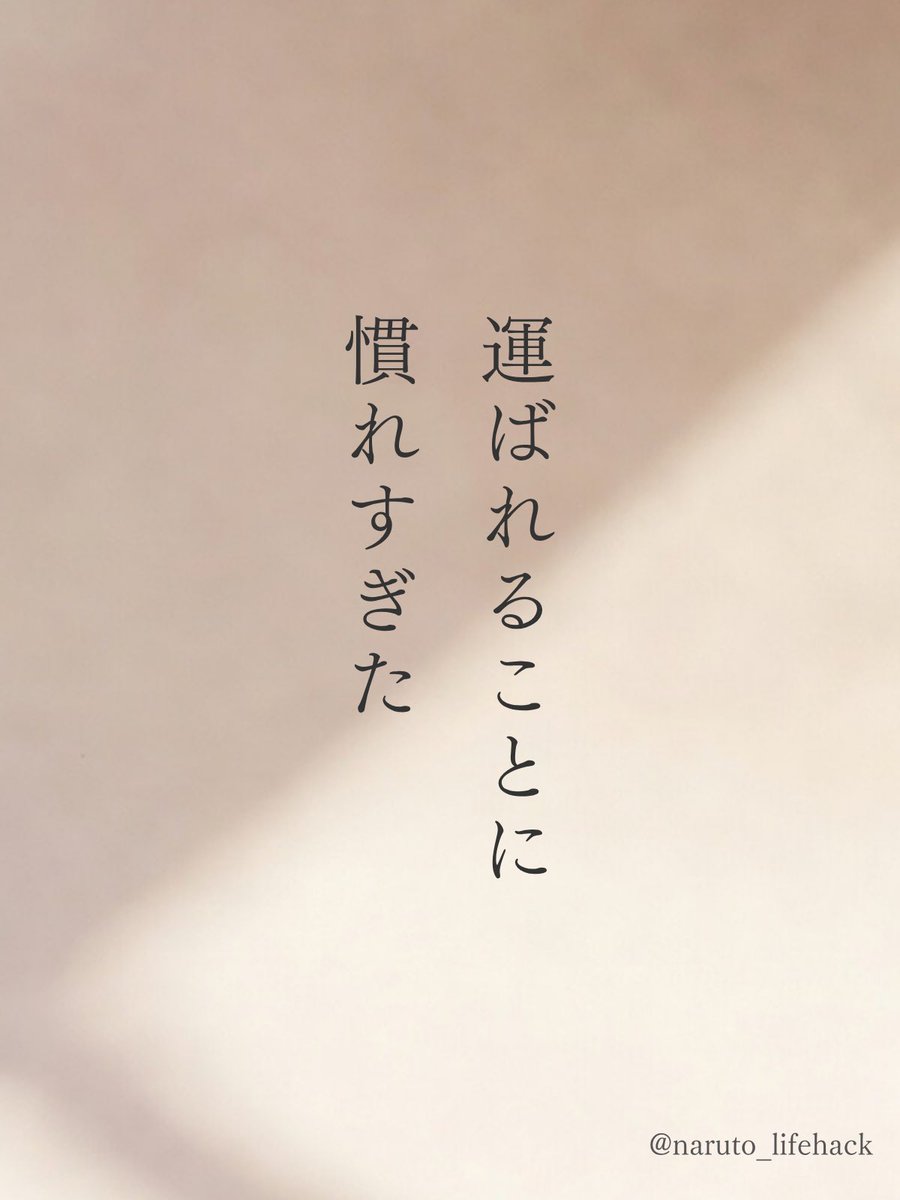 運ばれることに
慣れすぎた
@naruto_lifehack